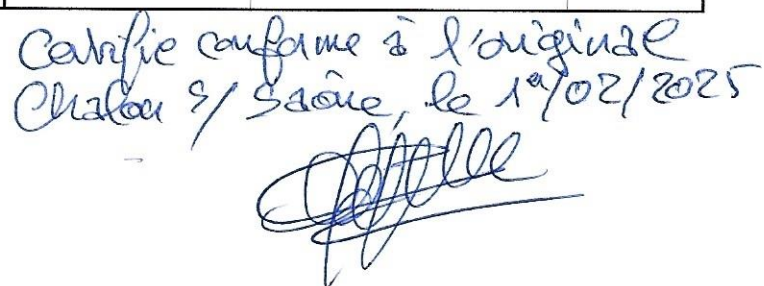 Certifie conforme à l'original
Chalon s/ Saône, le 1er/02/2025